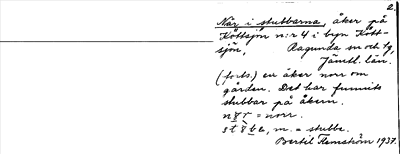 2.
När i stubbarna, åker på
Köttsjön n:r 4 i byn Kött-
sjön, Ragunda sn och tg,
Jämtl. län.
(forts.) en åker norr om
gården. Det har funnits
stubbar på åkern.
= norr.
m. = stubbe.
Bertil Flemström 1937.